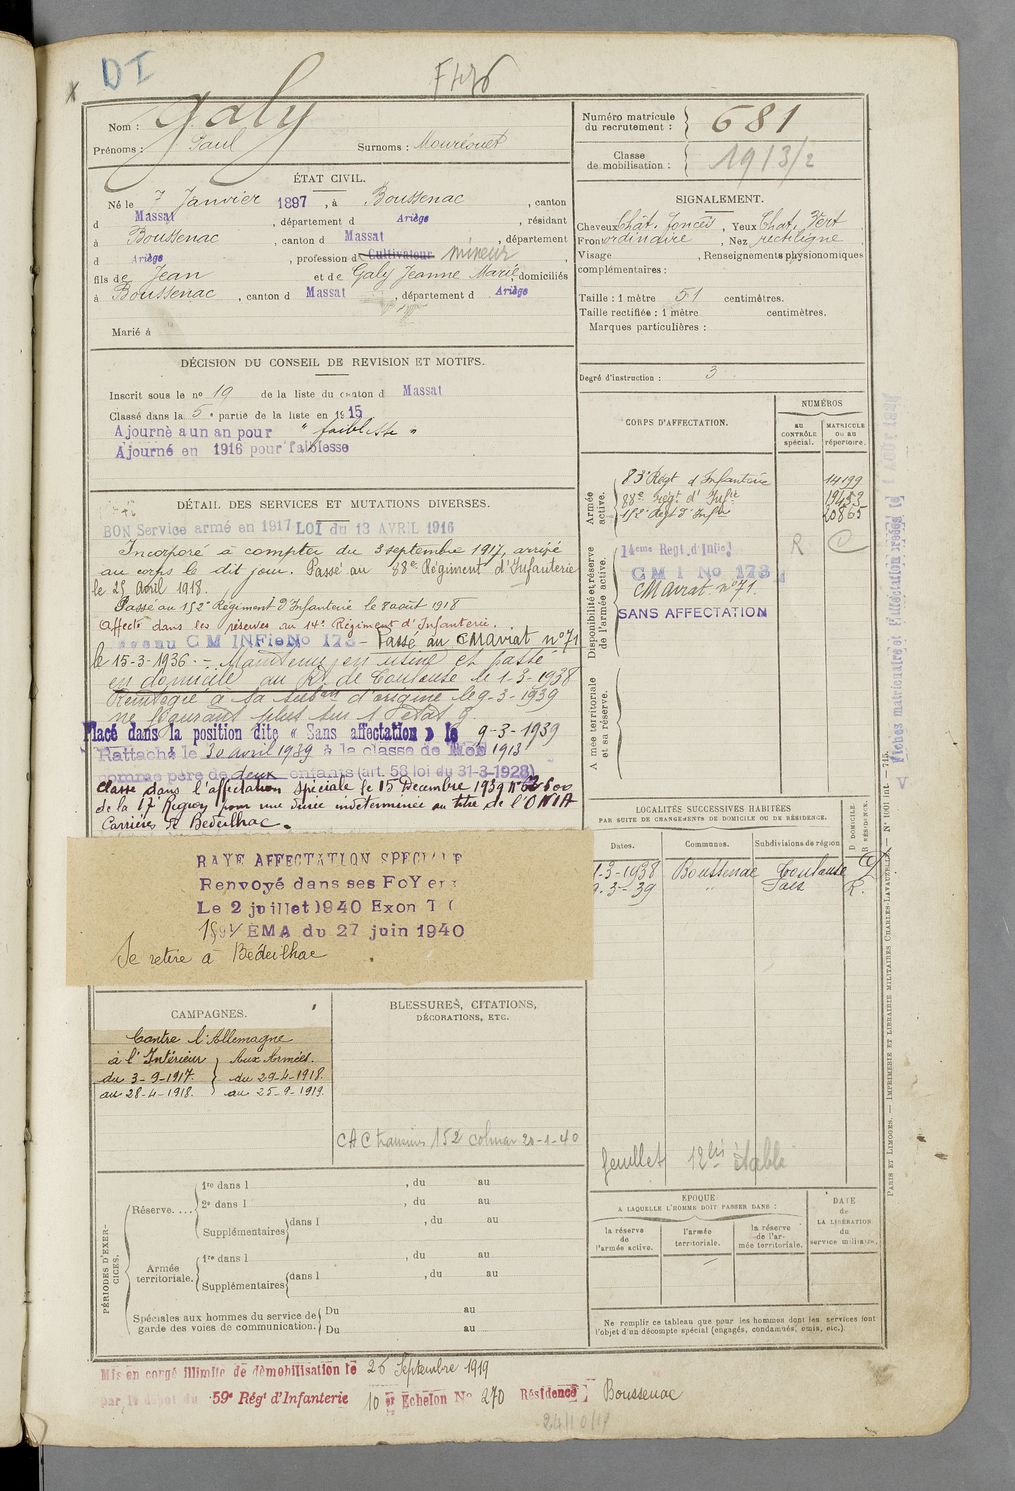 DI
X
Nom : Galy
Prénoms : Paul Surnoms : Mouréouet
Numéro matricule du recrutement : 681
Classe de mobilisation : 1913/2
ÉTAT CIVIL.
Né le 7 Janvier 1897, à Boussenac, canton
d Massat, département d Ariège, résidant
à Boussenac, canton d Massat, département
d Ariège, profession d Cultivateur mineur
fils de Jean et de Galy Jeanne Marie, domiciliés
à Boussenac, canton d Massat, département d Ariège
Marié à
SIGNALEMENT.
Cheveux Chât. foncé, Yeux Chat. Vert
Front ordinaire, Nez rectiligne
Visage , Renseignements physionomiques
complémentaires :
Taille : 1 mètre 51 centimètres.
Taille rectifiée : 1 mètre centimètres.
Marques particulières :
Degré d'instruction : 3
DÉCISION DU CONSEIL DE REVISION ET MOTIFS.
Inscrit sous le nº 19 de la liste du canton d Massat
Classé dans la 5e partie de la liste en 1915
Ajourné à un an pour " faiblesse "
Ajourné en 1916 pour faiblesse
DÉTAIL DES SERVICES ET MUTATIONS DIVERSES.
BON Service armé en 1917 LOI du 13 AVRIL 1916
Incorporé à compter du 3 septembre 1917, arrivé
au corps le dit jour. Passé au 88e Régiment d'Infanterie
le 25 avril 1918.
Passé au 152e Régiment d'Infanterie le 8 août 1918
Affecté dans les réserves au 14e Régiment d'Infanterie.
C M INFie No 173 - Passé au CMariat nº 71
le 15-3-1936. - Maintenu en usine et passé
en domicile au R. de Toulouse le 1-3-1938
Réintégré à sa subon d'origine le 9-3-1939
ne figurant plus sur l'état
Placé dans la position dite « Sans affectation » le 9-3-1939
Rattaché le 30 avril 1939 à la classe de Mob 1913
comme père de deux enfants (art. 58 loi du 31-3-1928)
Classé dans l'affectation spéciale le 15 Décembre 1939
de la 17e Région pour une durée indéterminée au titre de l'ONIA
Carrières de Bédeilhac.
RAYÉ AFFECTATION SPECIALE
Renvoyé dans ses FoYers
Le 2 juillet 1940 Exon
EMA du 27 juin 1940
Se retire à Bédeilhac
CORPS D'AFFECTATION.
NUMÉROS
AU CONTRÔLE spécial.
MATRICULE ou au répertoire.
Armée active.
83e Régt d'Infanterie 14199
88e Régt d'Infie 19453
152e Régt d'Infie 20865
Disponibilité et réserve de l'armée active.
14eme Regt d'Infie R C
C M I No 173
CMariat nº 71.
SANS AFFECTATION
Armée territoriale et sa réserve.
LOCALITÉS SUCCESSIVES HABITÉES
PAR SUITE DE CHANGEMENTS DE DOMICILE OU DE RÉSIDENCE.
Dates. Communes. Subdivisions de région. D DOMICILE. R RÉSIDENCE.
1-3-1938 Boussenac Toulouse D
9-3-39 " R.
feuillet 12bis établi
CAMPAGNES.
Contre l'Allemagne
à l'Intérieur } Aux Armées.
du 3-9-1917. du 29-4-1918.
au 28-4-1918. au 25-9-1919.
BLESSURES, CITATIONS,
DÉCORATIONS, ETC.
CAC 152 Colmar 20-1-40
PÉRIODES D'EXERCICES.
Réserve....
1re dans l , du au
2e dans l , du au
Supplémentaires dans l , du au
Armée territoriale.
1re dans l , du au
Supplémentaires dans l , du au
Spéciales aux hommes du service de garde des voies de communication.
Du au
Du au
ÉPOQUE
A LAQUELLE L'HOMME DOIT PASSER DANS :
la réserve de l'armée active.
l'armée territoriale.
la réserve de l'armée territoriale.
DATE de LA LIBÉRATION du service militaire.
Ne remplir ce tableau que pour les hommes dont les services font
l'objet d'un décompte spécial (engagés, condamnés, omis, etc.).
Mis en congé illimité de démobilisation le 26 Septembre 1919
par le dépôt du 59e Régt d'Infanterie 10 er Echelon No 270 Résidence Boussenac
PARIS ET LIMOGES. — IMPRIMERIE ET LIBRAIRIE MILITAIRES CHARLES-LAVAUZELLE — Nº 1001 int. — 715.